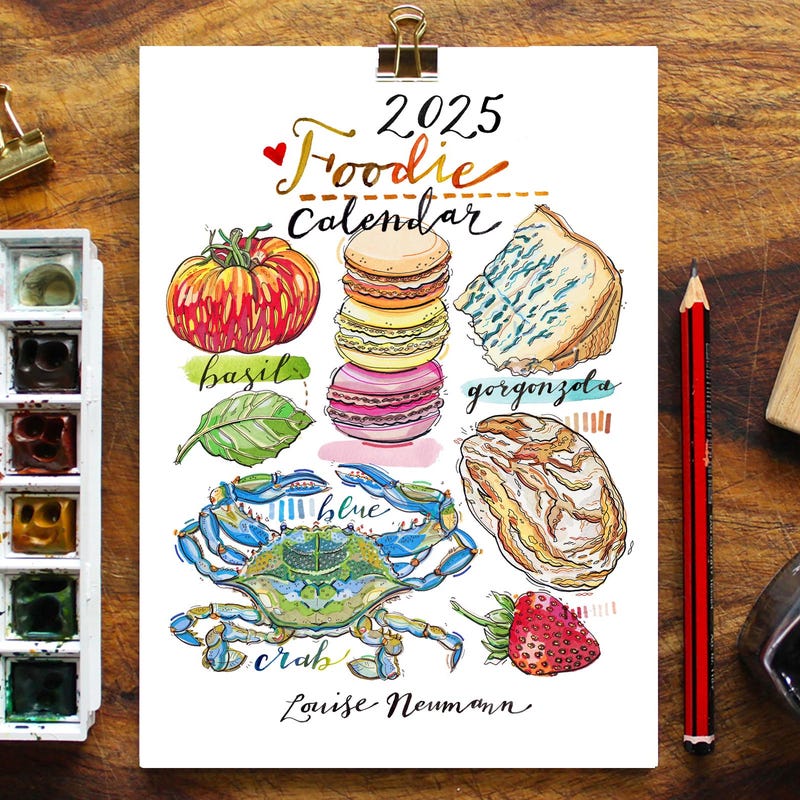 2025
Foodie
Calendar
basil
gorgonzola
blue
crab
Louise Neumann